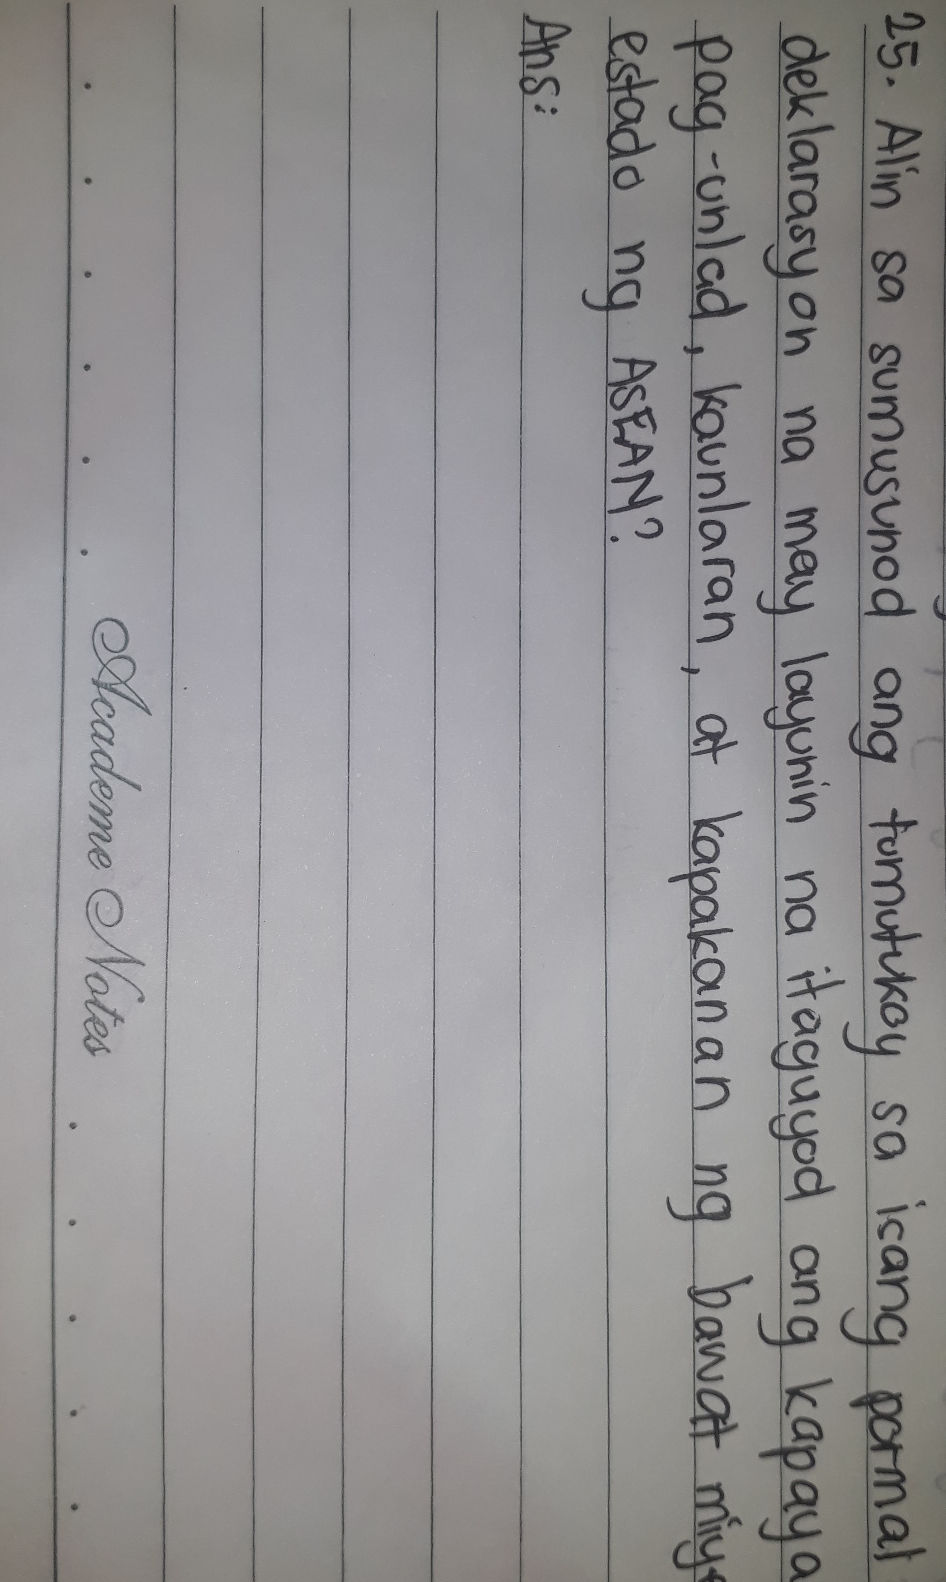 25. Alin sa sumusunod ang tumutukoy sa isang pormal
deklarasyon na may layunin na itaguyod ang kapaya
pag-unlad, kaunlaran, at kapakanan ng bawat miy
estado ng ASEAN?
Ans:
Academe Notes